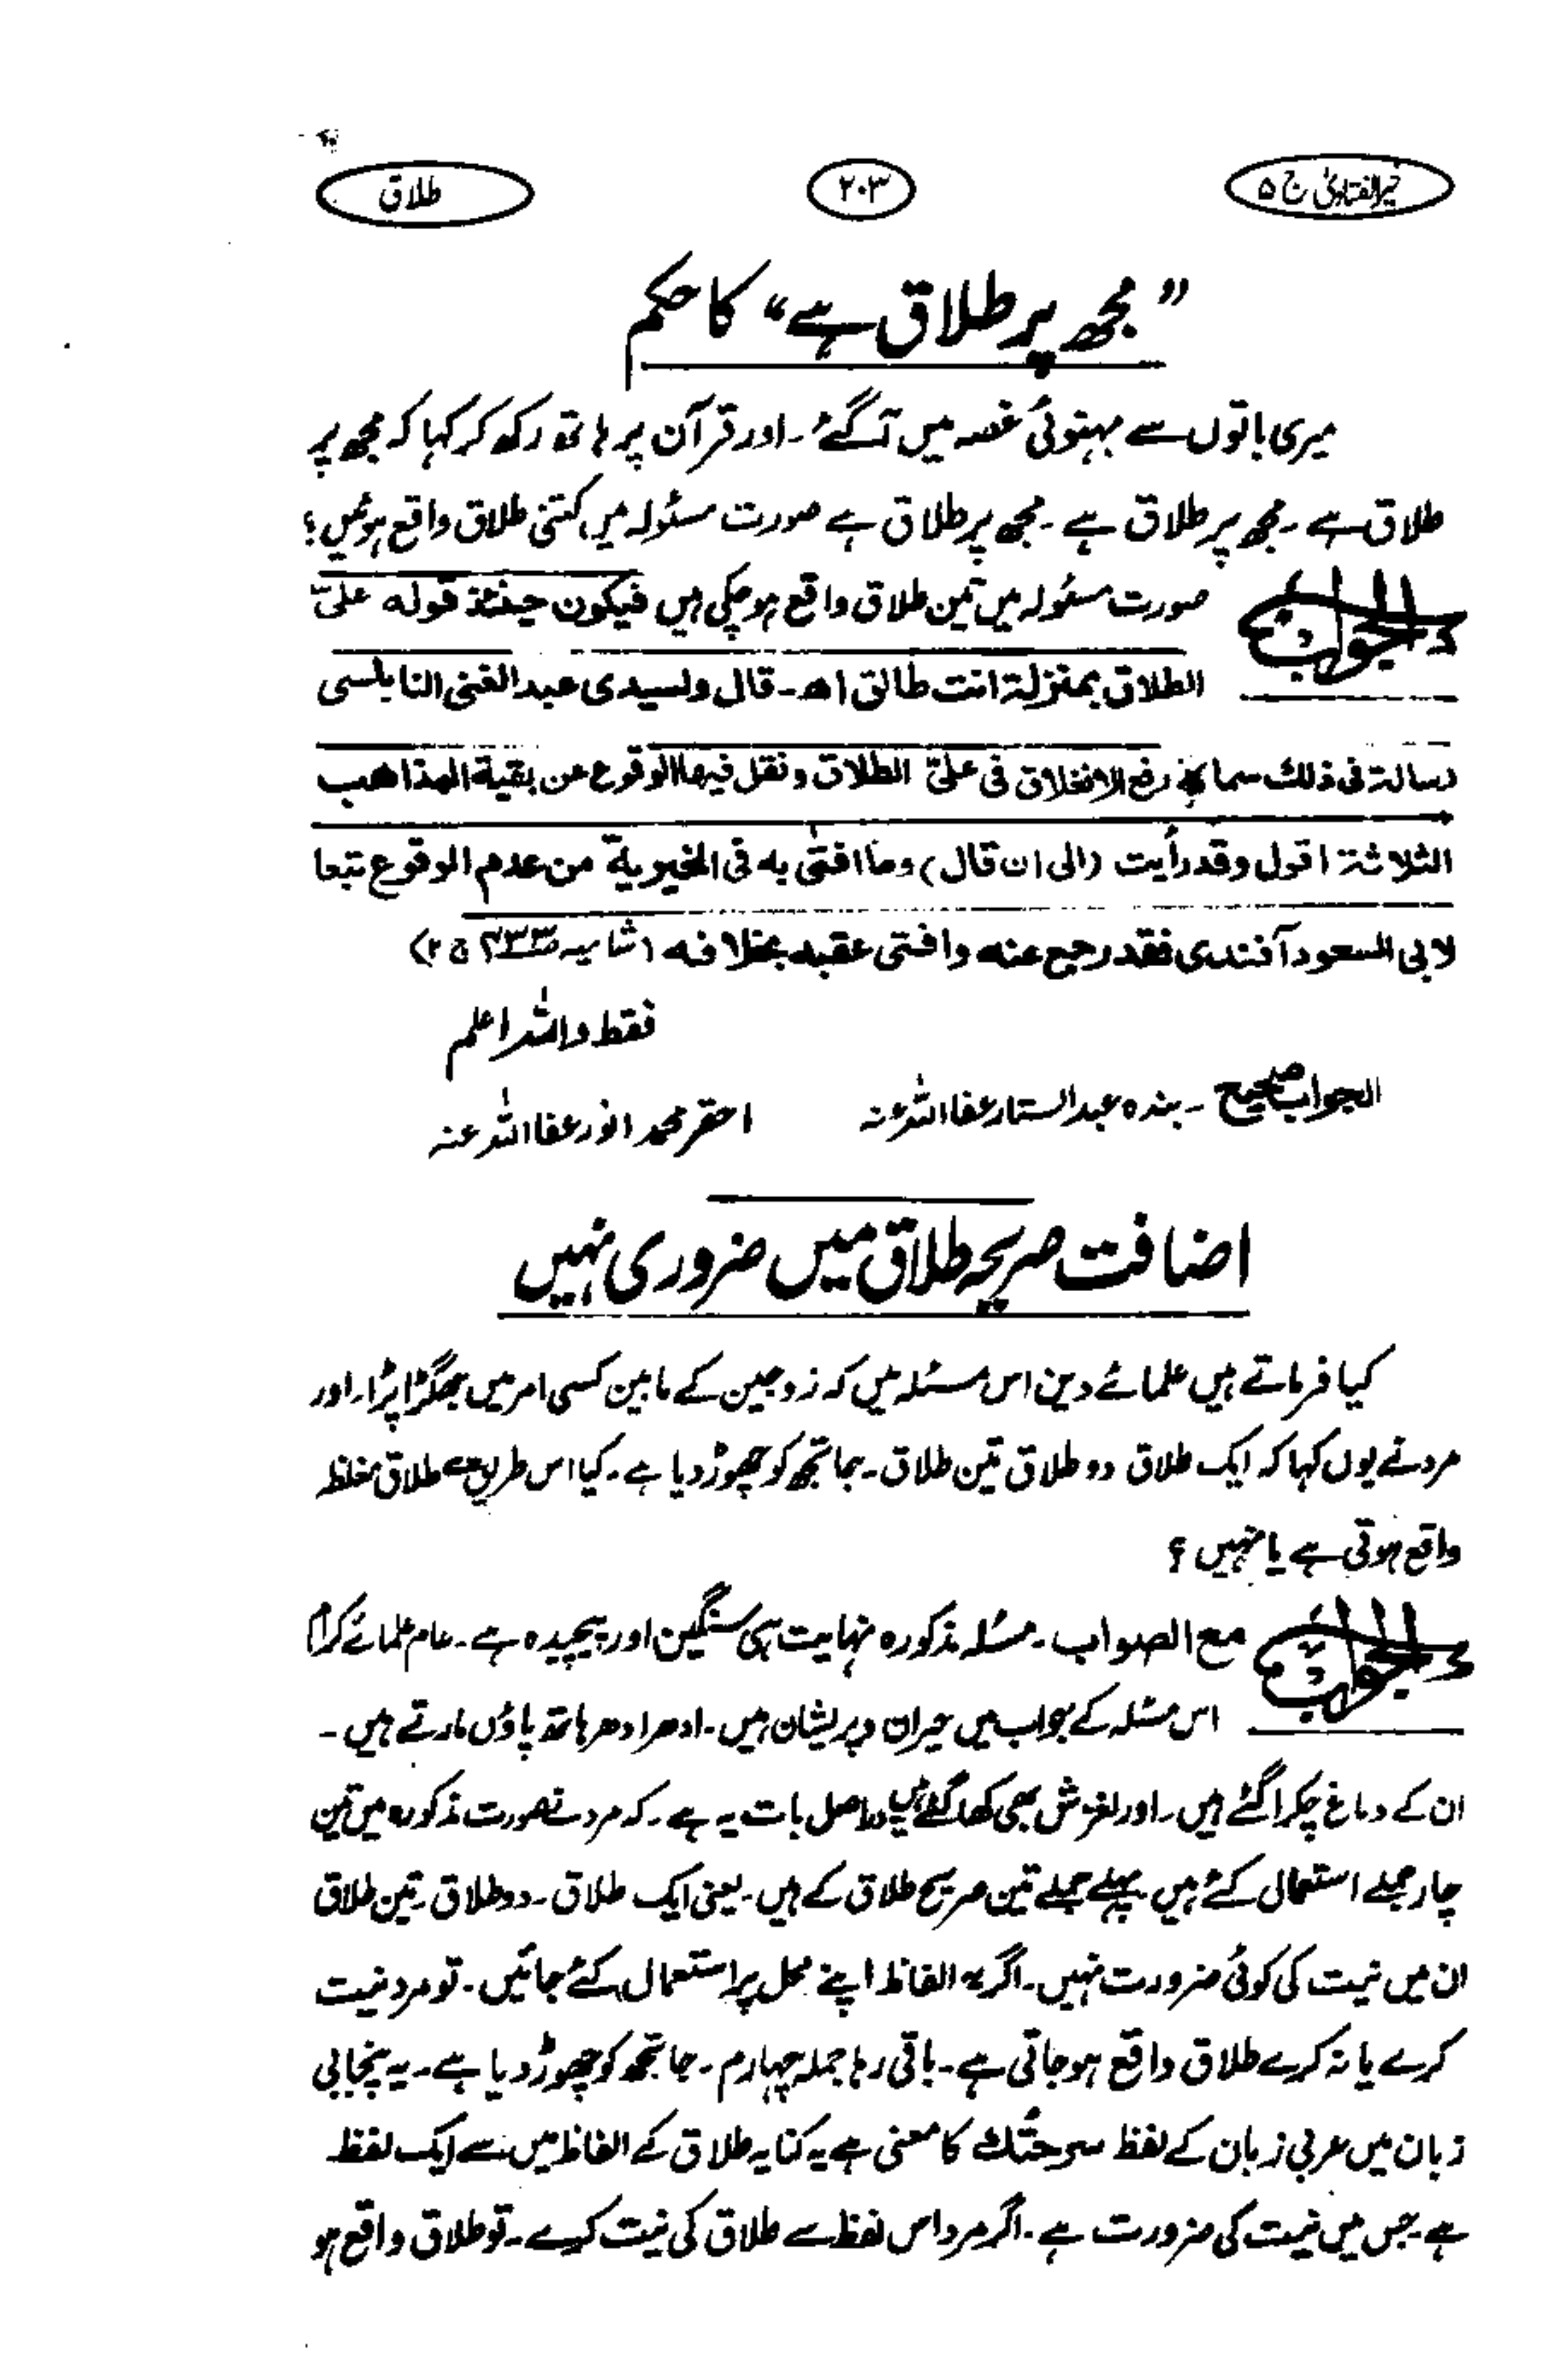 خیر الفتاویٰ ج ۵
۲۰۳
طلاق
”مجھ پر طلاق ہے“ کا حکم
میری باتوں سے بہنوئی غصہ میں آگئے۔ اور قرآن پر ہاتھ رکھ کر کہا کہ مجھ پر
طلاق ہے۔ مجھ پر طلاق ہے۔ مجھ پر طلاق ہے صورت مسئولہ میں کتنی طلاق واقع ہوئیں؟
الجواب صورت مسئولہ میں تین طلاق واقع ہوچکی ہیں فیکون حینئذ قوله علیّ
الطلاق بمنزلة انت طالق اھ۔ قال ولسیدی عبد الغنی النابلسی
رسالة فی ذلك سماہ رفع الانغلاق فی علیّ الطلاق ونقل فیها الوقوع عن بقیة المذاهب
الثلاثة اقول وقد رأیت (الی ان قال) وما افتیٰ به فی الخیریة من عدم الوقوع تبعا
لابی السعود آفندی فقد رجع عنه وافتی عقبه بخلافه (شامیہ ج۲)
فقط واللہ اعلم
الجواب صحیح۔ بندہ عبد الستار عفا اللہ عنہ
احقر محمد انور عفا اللہ عنہ
اضافت صریحہ طلاق میں ضروری نہیں
کیا فرماتے ہیں علمائے دین اس مسئلہ میں کہ زوجین کے مابین کسی امر میں جھگڑا پڑا۔ اور
مرد نے یوں کہا کہ ایک طلاق دو طلاق تین طلاق۔ جا تجھ کو چھوڑ دیا ہے۔ کیا اس طریق سے طلاق مغلظہ
واقع ہوتی ہے یا نہیں؟
الجواب مع الصواب۔ مسئلہ مذکورہ نہایت ہی سنگین اور پیچیدہ ہے۔ عام علمائے کرام
اس مسئلہ کے جواب میں حیران و پریشان ہیں۔ ادھر ادھر ہاتھ پاؤں مارتے ہیں۔
ان کے دماغ چکرا گئے ہیں۔ اور لغزش بھی کھا گئے ہیں۔ اصل بات یہ ہے۔ کہ مرد نے صورت مذکورہ میں تین
چار جملے استعمال کئے ہیں۔ پہلے جملے تین صریح طلاق کے ہیں۔ یعنی ایک طلاق۔ دو طلاق۔ تین طلاق
ان میں نیت کی کوئی ضرورت نہیں۔ اگر یہ الفاظ اپنے محل پر استعمال کئے جائیں۔ تو مرد نیت
کرے یا نہ کرے طلاق واقع ہو جاتی ہے۔ باقی رہا جملہ چہارم۔ جا تجھ کو چھوڑ دیا ہے۔ یہ پنجابی
زبان میں عربی زبان کے لفظ سرحتُك کا معنی ہے یہ کنایہ طلاق کے الفاظ میں سے ایک لفظ
ہے۔ جس میں نیت کی ضرورت ہے۔ اگر مرد اس لفظ سے طلاق کی نیت کرے۔ تو طلاق واقع ہو